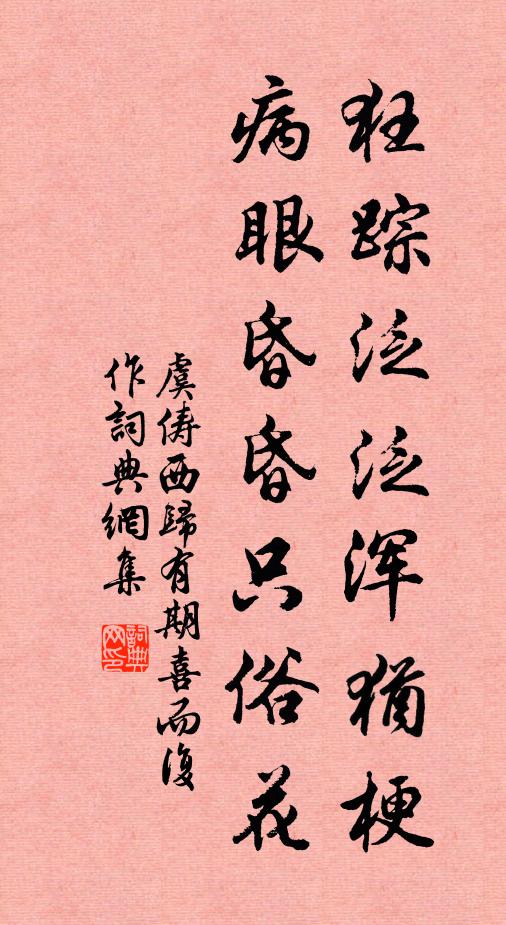 狂踪泛泛浑猶梗
病眼昏昏只俗花
虞俦西歸有期喜而復
作詞典網集
詞典網印